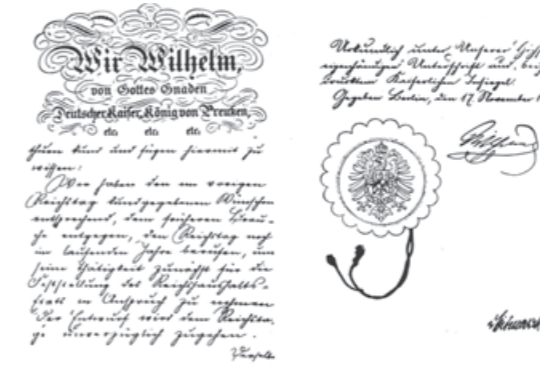 Wir Wilhelm,
von Gottes Gnaden
Deutscher Kaiser, König von Preußen,
etc. etc. etc.
thun kund und fügen hiermit zu
wissen:
Wir haben den im vorigen
Reichstag kundgegebenen Wünschen
entsprechend, dem früheren
entgegen, den Reichstag noch
im laufenden Jahre berufen, um
seine Thätigkeit zunächst für die
Feststellung des Reichshaushalts-
in Anspruch zu nehmen
Der Entwurf wird dem Reichsta-
ge unverzüglich zugehen.
Urkundlich unter Unserer
eigenhändigen Unterschrift und
Kaiserlichen Insiegel.
Gegeben Berlin, den 17. November
Wilhelm